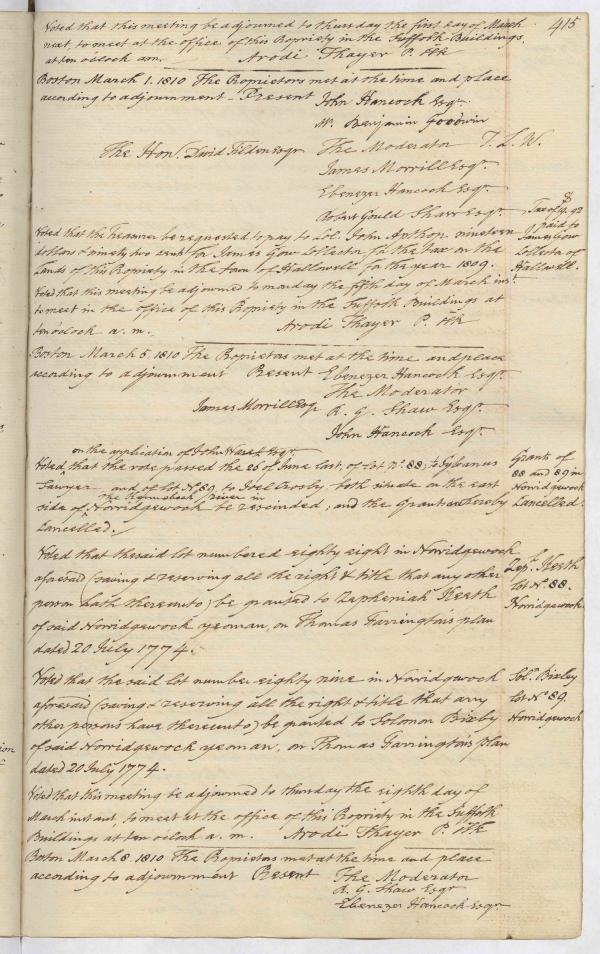 415
Voted that this meeting be adjourned to thursday the first day of March
next, to meet at the office of this Propriety in the Suffolk Buildings
at ten oClock am. Arodi Thayer P. Clk
Boston March 1. 1810 The Proprietors met at the time and place
according to adjournment _ Present John Hancock Esqr.
Mr. Benjamin Goodwin
The Honl. David Tilden Esqr The Moderator T. L. W.
James Morrill Esqr.
Ebenezer Hancock Esqr.
Robert Gould Shaw Esqr.
Voted that the Treasurer be requested to pay to Col. John Anthon nineteen
dollars & ninety two cents for James Gow Collector for the tax on the
Lands of this Propriety in the town of Hallowell for the year 1809.
Tax of 19.92
paid to
James Gow
Collector of
Hallowell.
Voted that this meeting be adjourned to monday the fifth day of March inst.
to meet in the office of this Propriety in the Suffolk Buildings at
ten oclock a. m. Arodi Thayer P. Clk
Boston March 5. 1810 The Proprietors met at the time and place
according to adjournment Present Ebenezer Hancock Esqr.
The Moderator
James Morrill Esq R. G. Shaw Esqr.
John Hancock Esqr.
on the application of John Ware Esqr.
Voted, that the vote passed the 25 of June last, of Lot No. 88, to Sylvanus
Sawyer, and of Lot No. 89, to Joel Crosby, both situate on the east
the Kennebeck river in
side of Norridgewock be rescinded; and the Grants hereby
Cancelled.
Grants of
88 and 89 in
Norridgewock
Cancelled.
Voted that the said lot numbered eighty eight in Norridgewock
aforesaid (saving & reserving all the right & title that any other
person hath thereunto) be granted to Zepheniah Keeth
of said Norridgewock yeoman, on Thomas Farrington's plan
dated 20 July 1774.
Zeph. Keeth
Lot No. 88.
Norridgewock.
Voted that the said lot number eighty nine in Norridgewock
aforesaid (saving & reserving all the right & title that any
other persons have thereunto) be granted to Solomon Bixby
of said Norridgewock yeoman, on Thomas Farrington's plan
dated 20 July 1774.
Solo. Bixby
Lot No. 89.
Norridgewock
Voted that this meeting be adjourned to thursday the eighth day of
March instant, to meet at the office of this Propriety in the Suffolk
Buildings at ten oclock a. m. Arodi Thayer P. Clk
Boston March 8. 1810 The Proprietors met at the time and place
according to adjournment Present The Moderator
R. G. Shaw Esqr
Ebenezer Hancock Esqr.